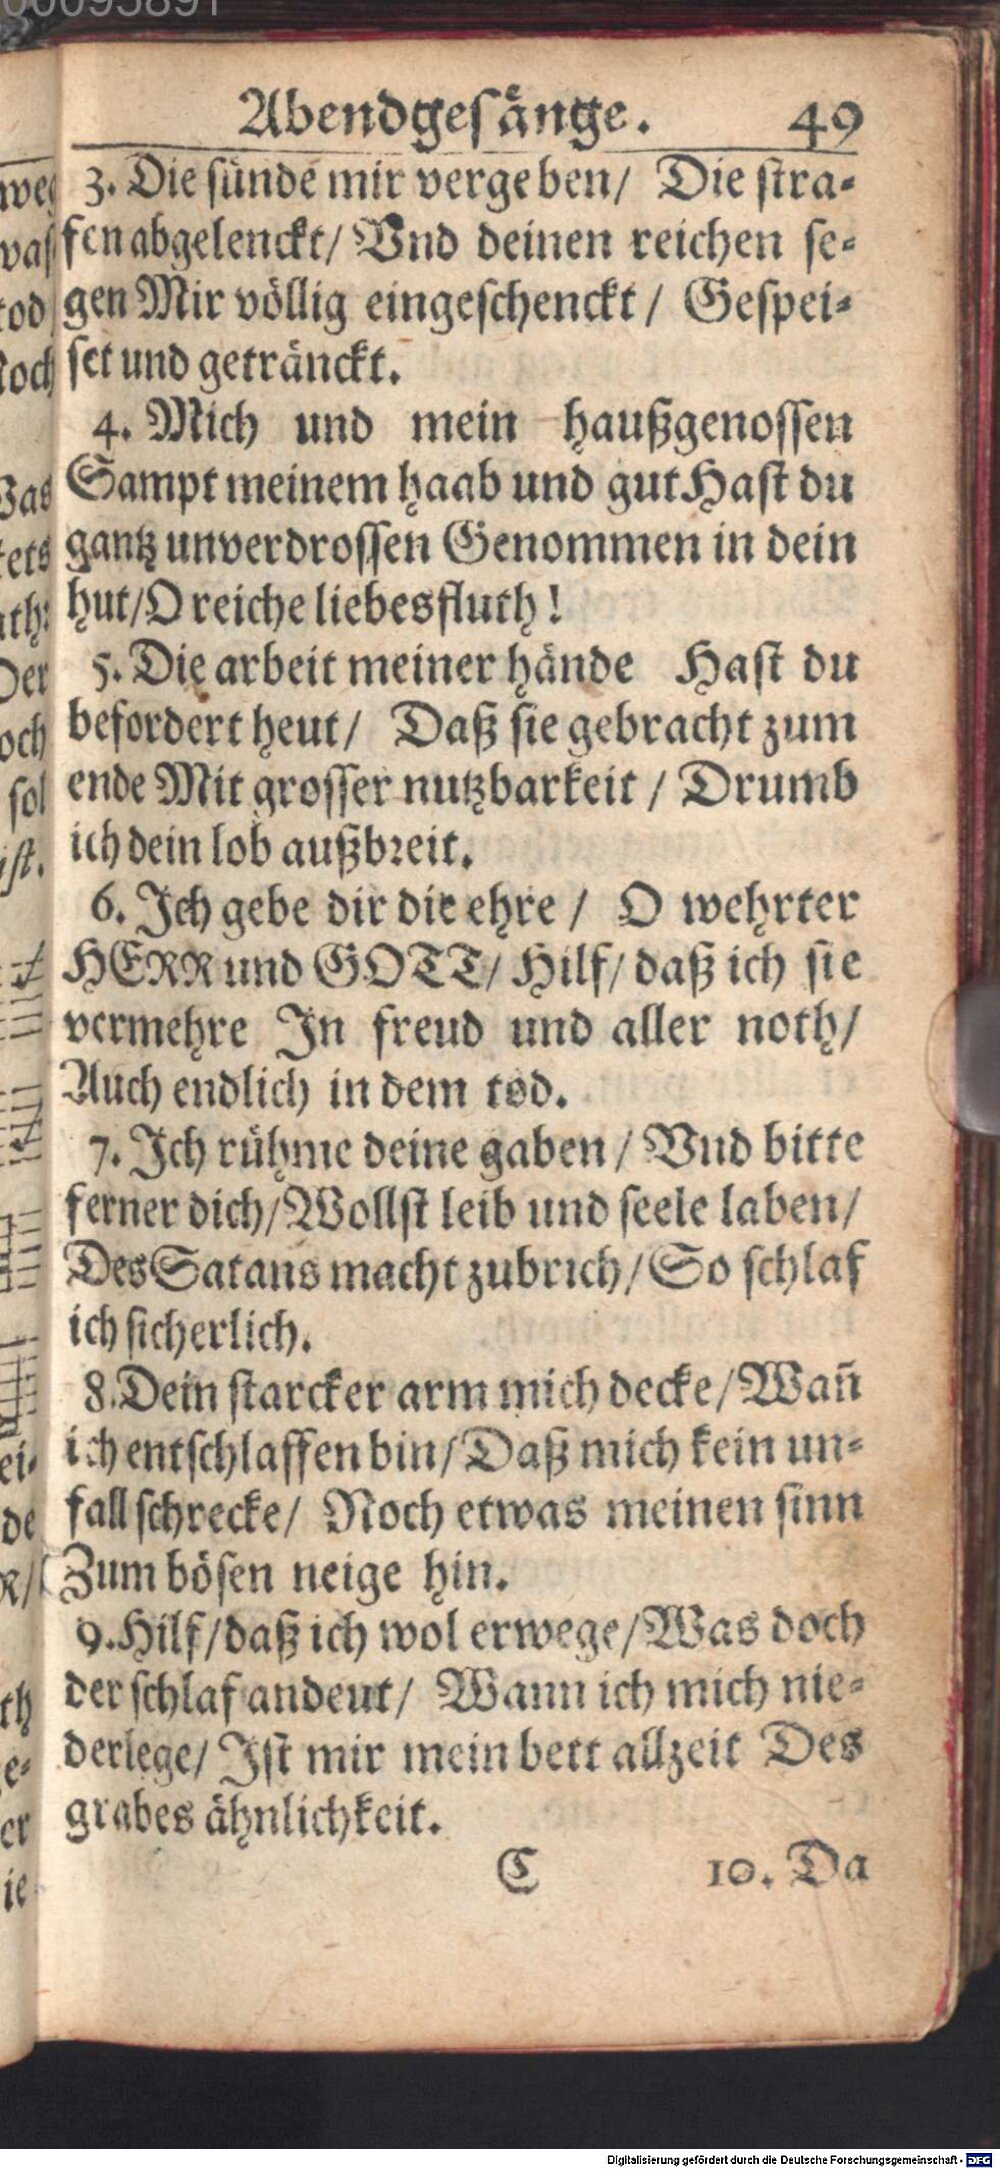 Abendgesänge. 49
3. Die sünde mir vergeben/ Die stra-
fen abgelenckt/ Vnd deinen reichen se-
gen Mir völlig eingeschenckt / Gespei-
set und getränckt.
4. Mich und mein haußgenossen
Sampt meinem haab und gut Hast du
gantz unverdrossen Genommen in dein
hut/ O reiche liebesfluth!
5. Die arbeit meiner hände Hast du
befordert heut/ Daß sie gebracht zum
ende Mit grosser nutzbarkeit / Drumb
ich dein lob außbreit.
6. Ich gebe dir die ehre / O wehrter
HERR und GOTT/ Hilf/ daß ich sie
vermehre In freud und aller noth/
Auch endlich in dem tod.
7. Ich rühme deine gaben / Vnd bitte
ferner dich/ Wollst leib und seele laben/
Des Satans macht zubrich/ So schlaf
ich sicherlich.
8. Dein starcker arm mich decke/ Wañ
ich entschlaffen bin/ Daß mich kein un-
fall schrecke/ Noch etwas meinen sinn
Zum bösen neige hin.
9. Hilf/ daß ich wol erwege/ Was doch
der schlaf andeut/ Wann ich mich nie-
derlege/ Ist mir mein bett allzeit Des
grabes ähnlichkeit.
C 10. Da
Digitalisierung gefördert durch die Deutsche Forschungsgemeinschaft - DFG